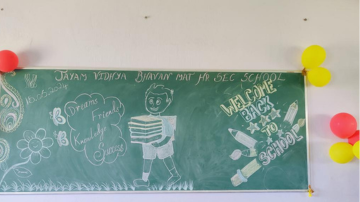 JAYAM VIDHYA BHAVAN MAT HR SEC SCHOOL
Dreams
Friends
Knowledge
WELCOME
BACK
TO
SCHOOL